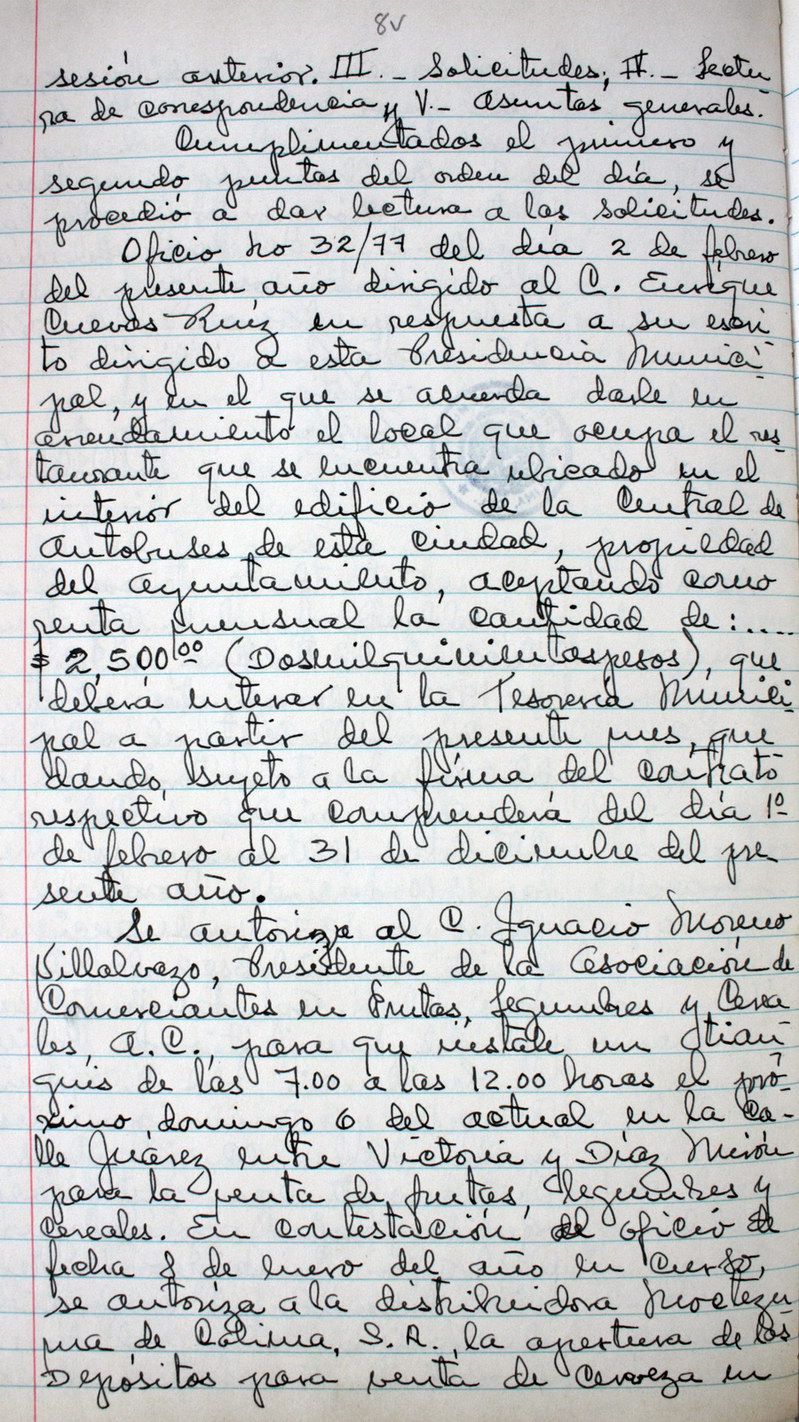 8v
sesión anterior. III.- Solicitudes; IV.- Lectu
ra de correspondencia y V.- Asuntos generales.
Cumplimentados el primero y
segundo puntos del orden del día, se
procedió a dar lectura a las solicitudes.
Oficio no 32/77 del día 2 de febrero
del presente año dirigido al C. Enrique
Cuevas Ruíz en respuesta a su escri
to dirigido a esta Presidencia Munici
pal, y en el que se acuerda darle en
arrendamiento el local que ocupa el res-
taurante que se encuentra ubicado en el
interior del edificio de la Central de
Autobuses de esta ciudad, propiedad
del ayuntamiento, aceptando como
renta mensual la cantidad de:....
$ 2,500.00 (Dosmilquinientospesos), que
deberá enterar en la Tesorería Munici
pal a partir del presente mes, que
dando sujeto a la firma del contrato
respectivo que comprenderá del día 1º
de febrero al 31 de diciembre del pre
sente año.
Se autoriza al C. Ignacio Moreno
Villalvazo, Presidente de la Asociación de
Comerciantes en Frutas, Legumbres y Cerea
les, A.C., para que instale un tian
guis de las 7.00 a las 12.00 horas el pró-
ximo domingo 6 del actual en la Ca-
lle Juárez entre Victoria y Díaz Mirón
para la venta de frutas, legumbres y
cereales. En contestación al oficio de
fecha 8 de enero del año en curso,
se autoriza a la distribuidora Moctezu
ma de Colima, S.A., la apertura de los
Depósitos para venta de Cerveza en